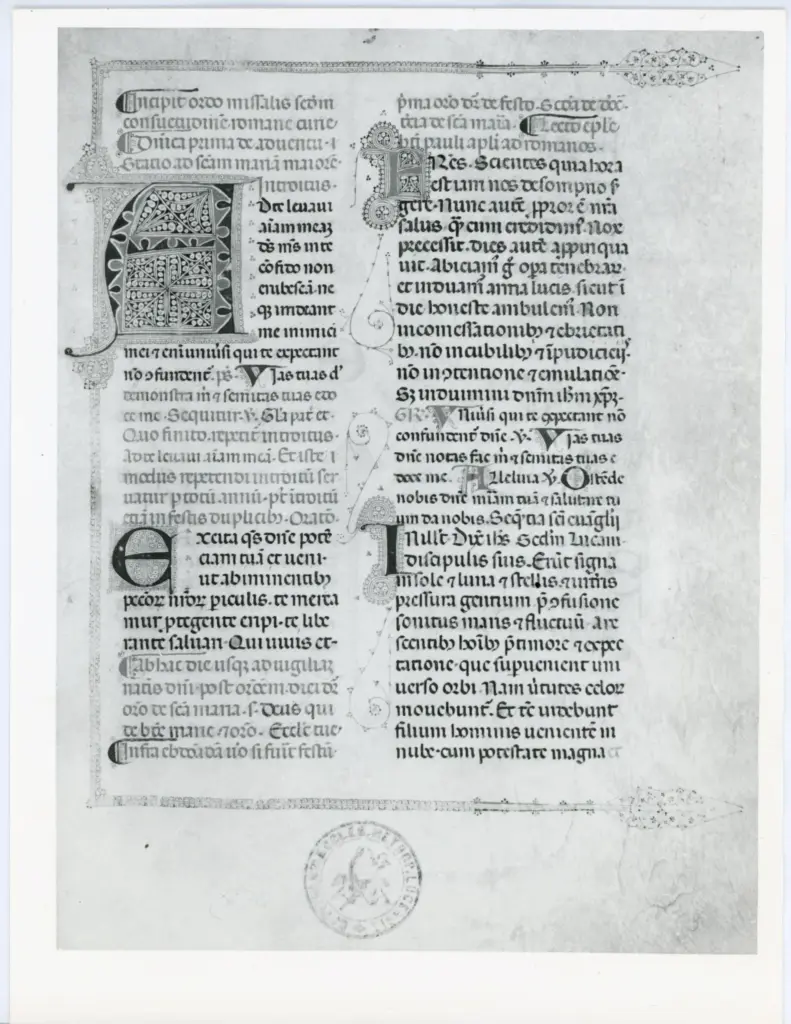 Incipit ordo missalis scdm
consuetudinē romane curie
Dn̄ica prima de aduentu. i
Statio ad scām mariā maiorē.
Introitus.
Ad te leuaui
aīam meaʒ
ds̄ ms̄ in te
cōfido non
erubescā. ne
qʒ irrideant
me inimici
mei ⁊ eni uniūsi qui te expectant
nō ↄfundent̄. ps̄. Vias tuas d'
demonstra m̄ ⁊ semitas tuas edo
ce me. Sequitur. ℣. Gl̄a patr̄ et.
Quo finito. repetit̄ introitus.
Ad te leuaui aīam meā. Et iste
modus repetendi introitū ser
uatur p totū annū. pt̄ introitū
etiā in festis duplicibȝ. Orato.
Excita qs̄ dn̄e potē
ciam tuā et ueni.
ut ab iminentibȝ
peccoꝝ nr̄oꝝ piculis. te merea
mur ptegente eripi. te libe
rante saluari. Qui uiuis et.
Ab hac die usqʒ ad uigiliaꝫ
natis dn̄i. post orōem. diei dr̄
orō de scā maria. s. Deus qui
de btē marie. ⁊ orō. Ecctē tue.
Infra ebdoadā u̾o si fuīt festū.
p̄ma orō dr̄ de festo. Scd̄a de
de scā maīa. Lectio ep̄le
bt̄i pauli apl̄i ad romanos.
Fres. Scientes quia hora
est iam nos de sompno s̄
gere. Nunc aut̄ē ꝓpior ē nr̄a
salus. qͣ̄ cum credidimꝰ. Nox
precessit. dies aut̄ē appinqua
uit. Abiciamꝰ g̾ opa tenebraꝝ.
et induamꝰ arma lucis. sicut ī
die honeste ambulemꝰ. Non
in comessationibȝ ⁊ ebrietati
bȝ. nō in cubilibȝ ⁊ īpudicicijs.
nō in ↄtentione ⁊ emulatiōe.
Sȝ induimini dnm̄ ihm̄ xp̄ꝫ.
GR. Vniūsi qui te expectant nō
confundent̄ dn̄e. ℣. Vias tuas
dn̄e notas fac m̄ ⁊ semitas tuas e
doce me. Alleluia ℣. Ostēde
nobis dn̄e mīam tuā ⁊ salutare tu
um da nobis. Seq̄ntia scī euāglij
In illt̄. Dix̄ ihs̄. Scdm̄ Lucam.
discipulis suis. Erūt signa
in sole ⁊ luna ⁊ stellis. ⁊ in tr̄ris
pressura gentium p̄ ↄfusione
sonitus maris ⁊ fluctuū. Are
scentibȝ hoībȝ p̄ timore ⁊ expec
tatione. que supuenient uni
uerso orbi. Nam ūtutes celoꝝ
mouebunt̄. Et tc̄ uidebunt
filium hominis uenientē in
nube. cum potestate magna et